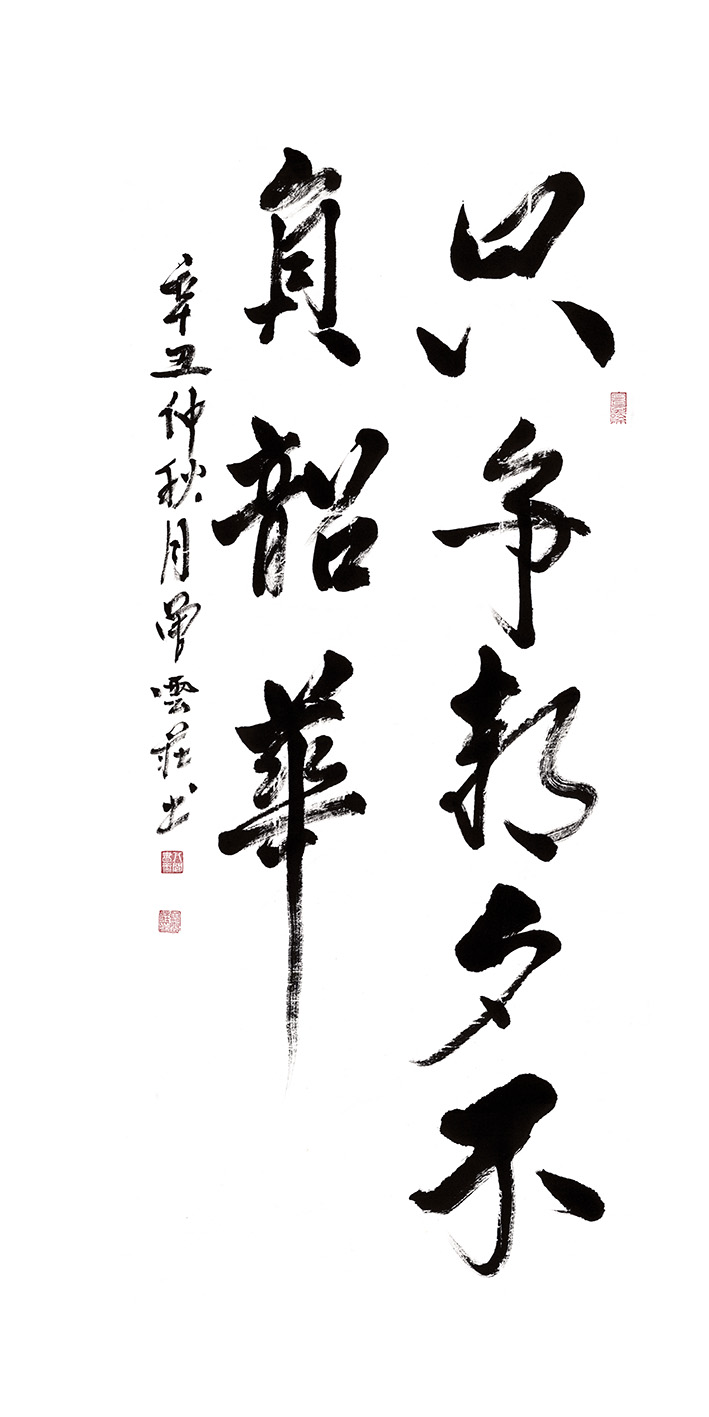 只争朝夕不
負韶華
辛丑仲秋月曾雲莊书